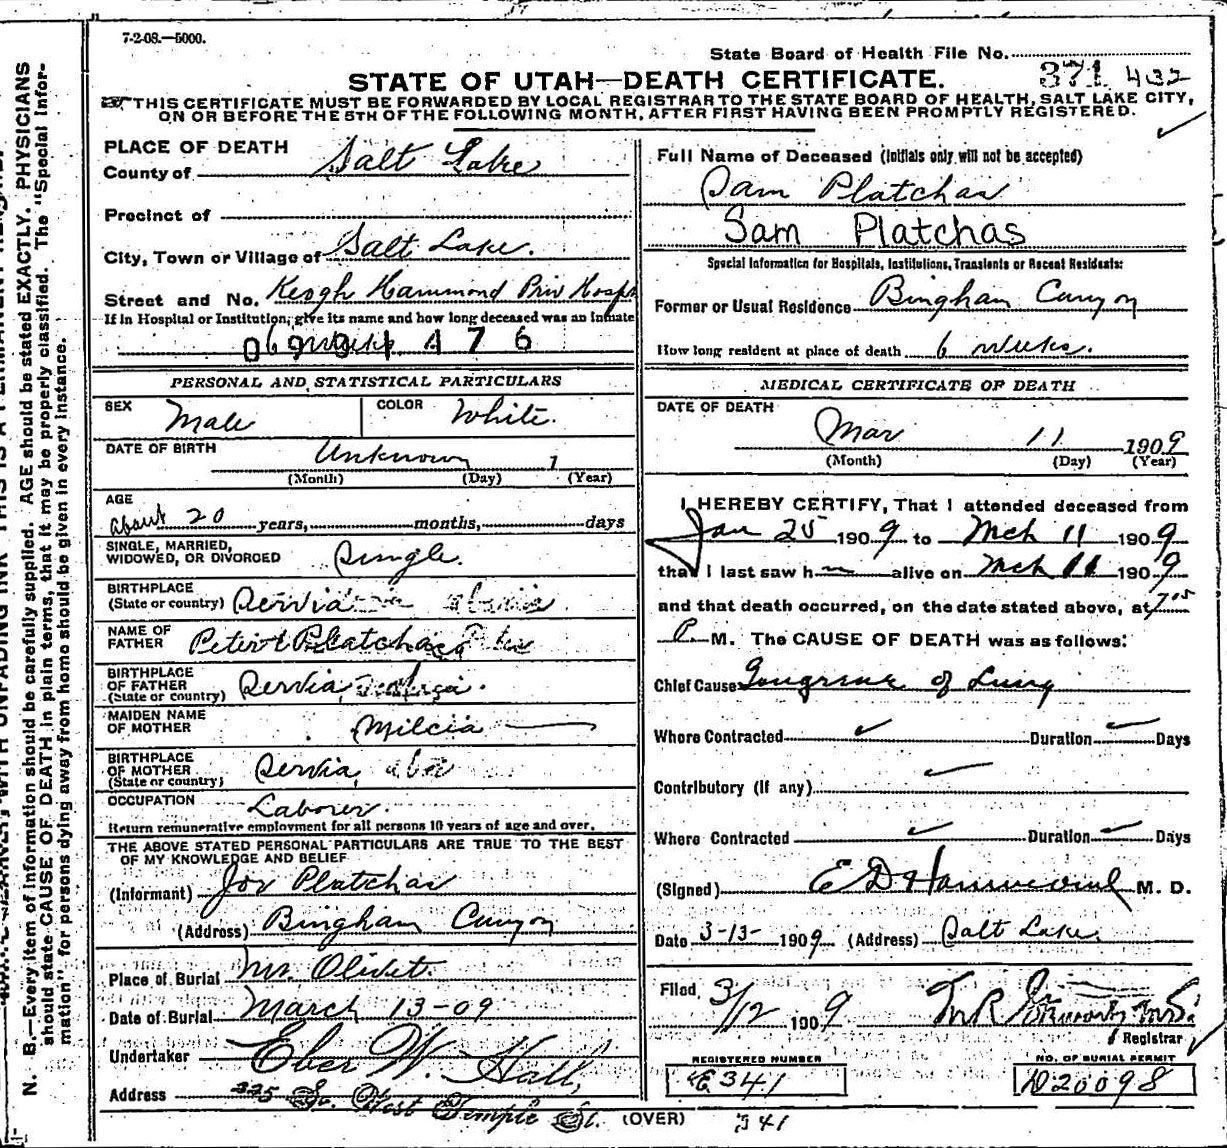 7-2-08.—5000.
State Board of Health File No.
371 432
STATE OF UTAH—DEATH CERTIFICATE.
THIS CERTIFICATE MUST BE FORWARDED BY LOCAL REGISTRAR TO THE STATE BOARD OF HEALTH, SALT LAKE CITY,
ON OR BEFORE THE 5TH OF THE FOLLOWING MONTH, AFTER FIRST HAVING BEEN PROMPTLY REGISTERED.
PLACE OF DEATH
County of Salt Lake
Precinct of
City, Town or Village of Salt Lake.
Street and No. Keogh Hammond Priv Hosp
If in Hospital or Institution, give its name and how long deceased was an inmate
PERSONAL AND STATISTICAL PARTICULARS
SEX Male COLOR White.
DATE OF BIRTH Unknown 1
(Month) (Day) (Year)
AGE
about 20 years, months, days
SINGLE, MARRIED,
WIDOWED, OR DIVORCED Single.
BIRTHPLACE
(State or country) Servia
NAME OF
FATHER Peter Platchas
BIRTHPLACE
OF FATHER
(State or country) Servia
MAIDEN NAME
OF MOTHER Milcia
BIRTHPLACE
OF MOTHER
(State or country) Servia
OCCUPATION Laborer.
Return remunerative employment for all persons 10 years of age and over.
THE ABOVE STATED PERSONAL PARTICULARS ARE TRUE TO THE BEST
OF MY KNOWLEDGE AND BELIEF
(Informant) Joe Platchas
(Address) Bingham Canyon
Place of Burial Mt. Olivet.
Date of Burial March 13-09
Undertaker Eber W. Hall,
Address 225 So. West Temple St.
(OVER)
341
Full Name of Deceased (Initials only will not be accepted)
Sam Platchas
Sam Platchas
Special Information for Hospitals, Institutions, Transients or Recent Residents:
Former or Usual Residence Bingham Canyon
How long resident at place of death 6 weeks.
MEDICAL CERTIFICATE OF DEATH
DATE OF DEATH
Mar 11 1909
(Month) (Day) (Year)
I HEREBY CERTIFY, That I attended deceased from
Jan 25 1909 to Mch 11 1909
that I last saw h m alive on Mch 11 1909
and that death occurred, on the date stated above, at 7 15
P. M. The CAUSE OF DEATH was as follows:
Chief Cause Gangrene of Lung
Where Contracted Duration Days
Contributory (if any)
Where Contracted Duration Days
(Signed) E D Hammond M. D.
Date 3-13- 1909 (Address) Salt Lake.
Filed 3/12 1909
Registrar
REGISTERED NUMBER
E341
NO. OF BURIAL PERMIT
D20098
N. B.—Every item of information should be carefully supplied. AGE should be stated EXACTLY. PHYSICIANS
should state CAUSE OF DEATH in plain terms, that it may be properly classified. The "Special Infor-
mation" for persons dying away from home should be given in every instance.